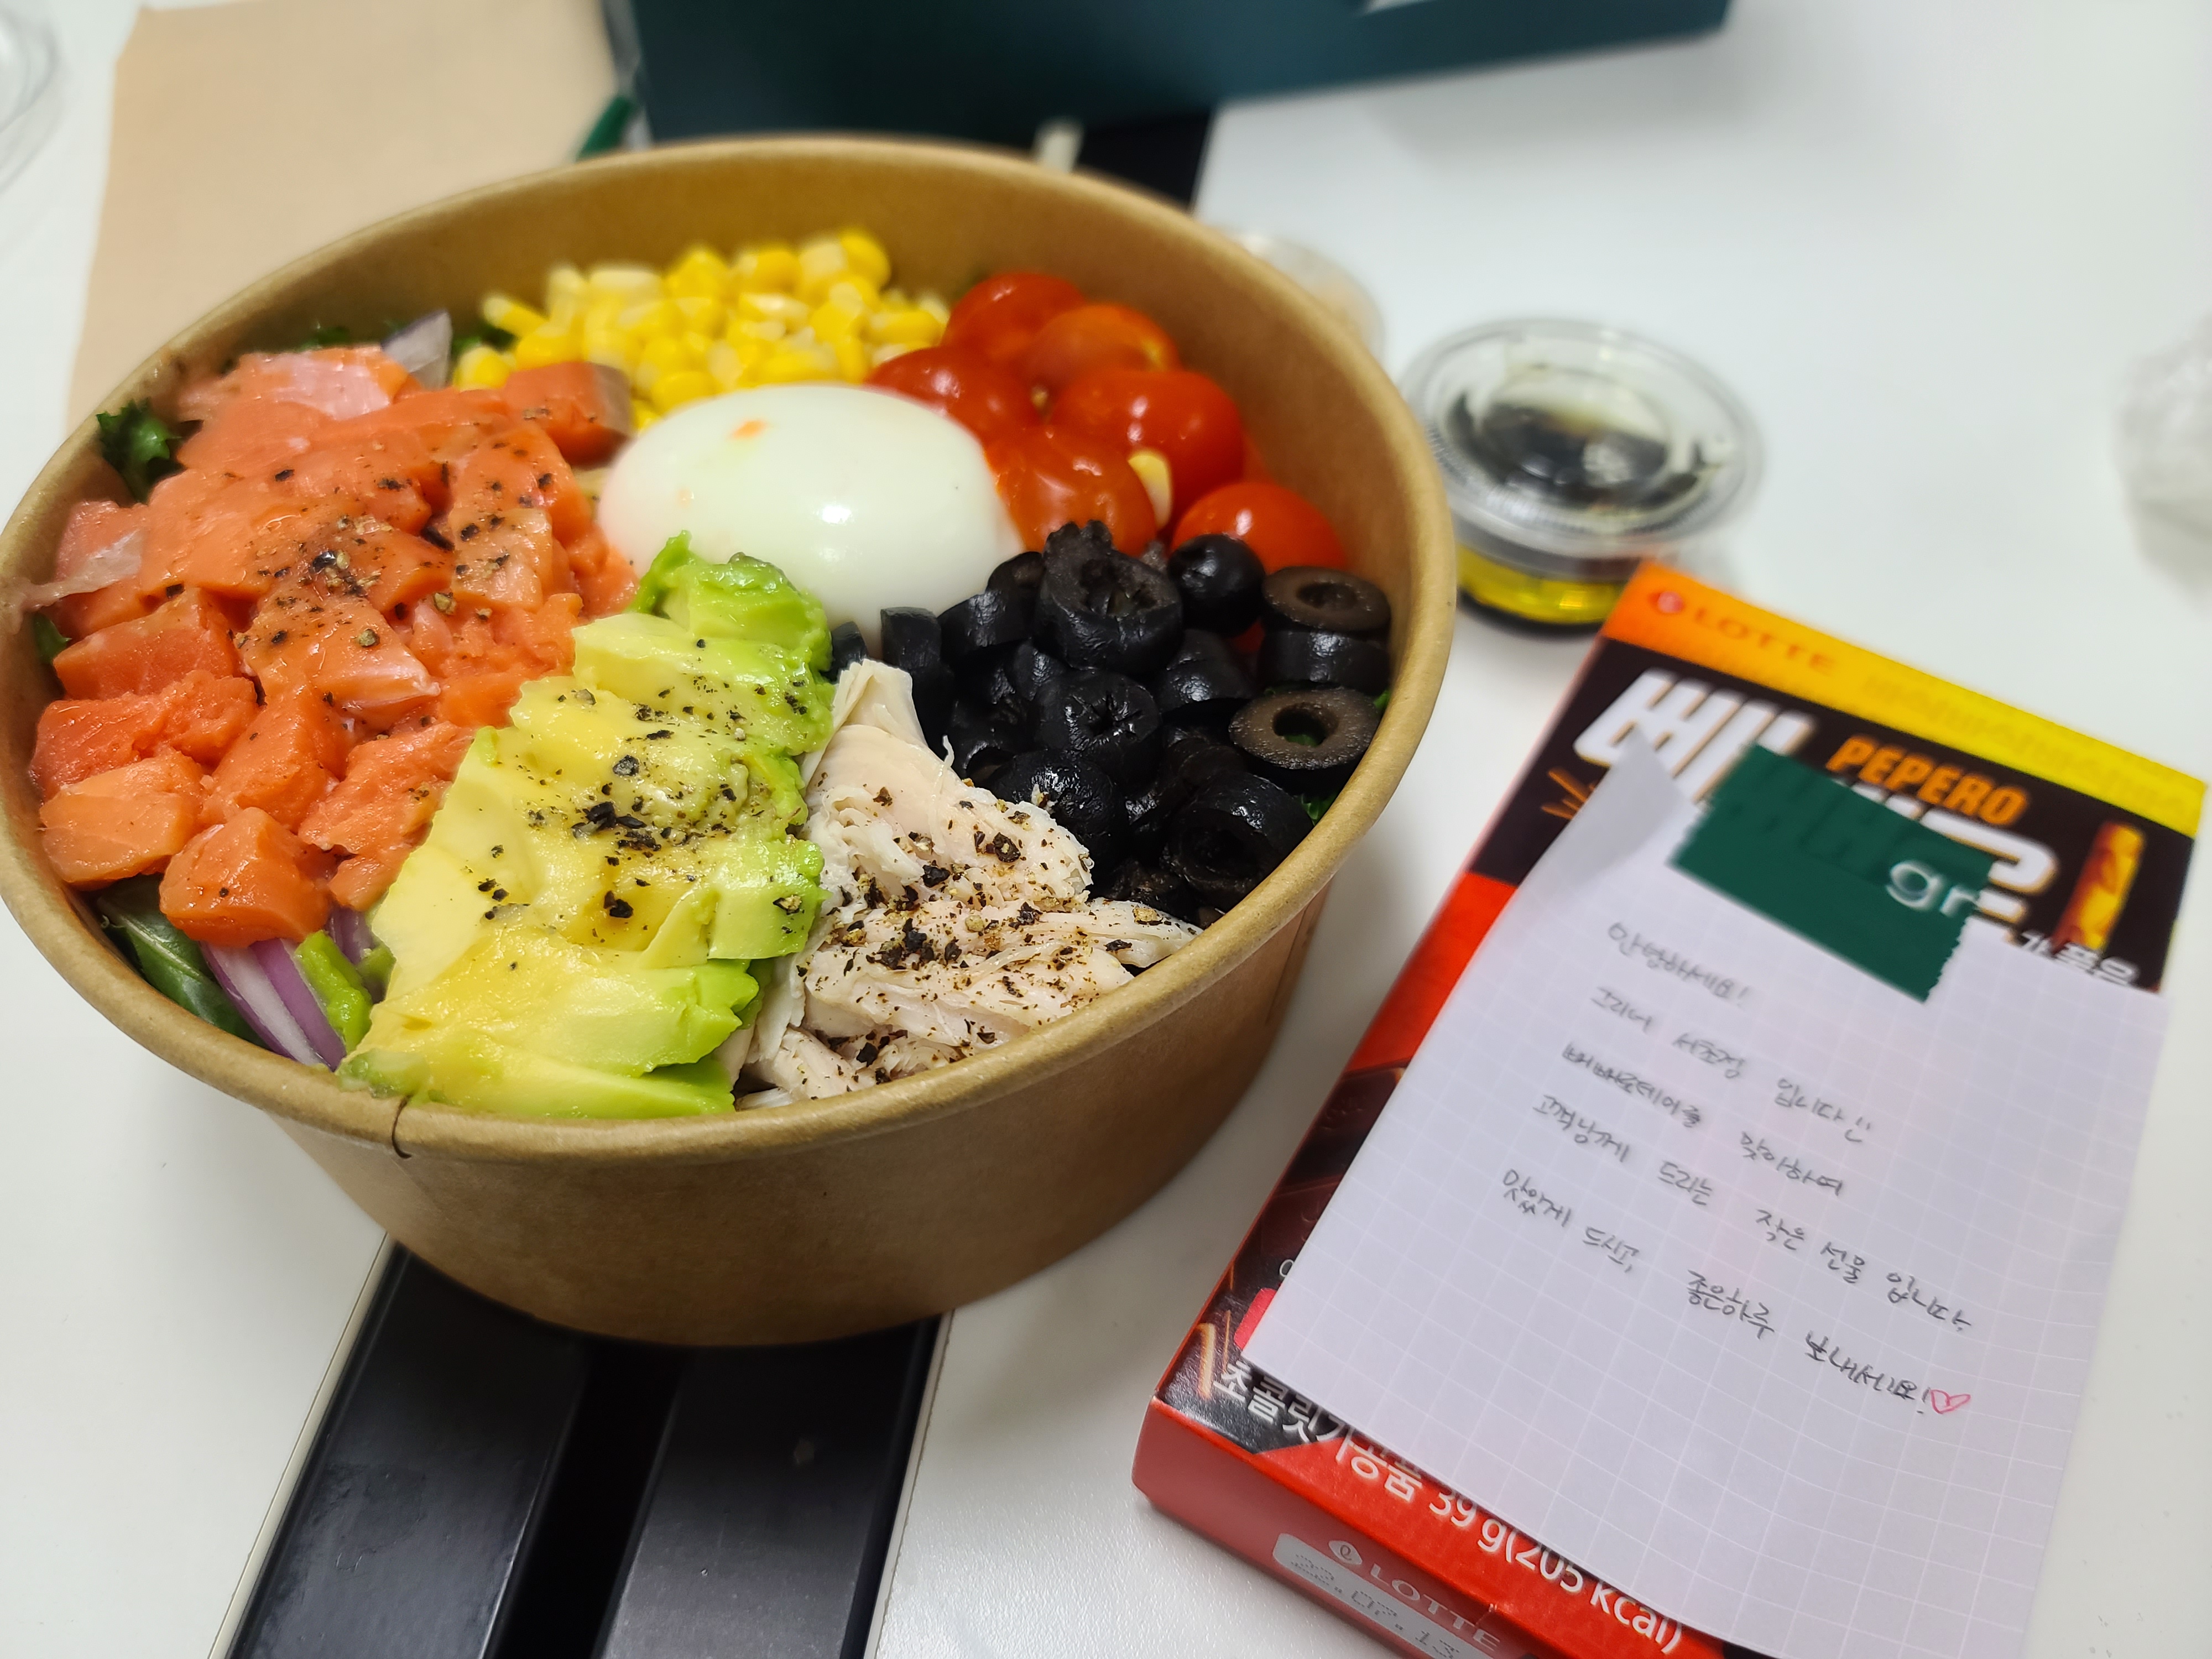 LOTTE
빼
PEPERO
gr
안녕하세요!
그리너 서초점 입니다 :)
빼빼로데이를 맞이하여
고객님께 드리는 작은 선물 입니다.
맛있게 드시고, 좋은하루 보내세요!♡
초콜릿가공품 39 g(205 kcal)
LOTTE